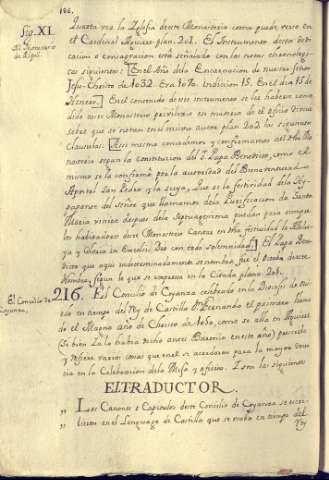 186.
Sig. XI.
El Monasterio de Ripol.
Quarta vez la Yglesia deste Monasterio como puede verse en
el Cardinal Aguirre plan. 201. El Instrumento desta dedi-
cacion o consagracion està señalado con las notas chronologi-
cas siguientes: En el Año dela Encarnacion de nuestro Señor
Jesu-Christo de 1032. Era 1070. Indicion 15. En el dia 15 de
Henero. En el contenido deste instrumento se lee haverse conce-
dido
saber que se tienen en el mismo
Clausulas: Assi mismo concedimos y confirmamos al dho Mo-
nasterio segun la Constitucion del S. Papa Benedicto, como assi
mismo se lo confirmò por la autoridad del Bienaventurado
Apostol San Pedro y la suya, Que en la festividad dela
del Señor que llamamos dela Purificacion de Santa
Maria viniere despues dela Septuagesima puedan para siempre
los habitadores deste Monasterio Cantar en dha festividad la Allelu-
ya y Gloria in Excelsis Deo con toda solemnidad. El Papa Bene-
dicto que aqui indeterminadamente se nombra fue el Octavo deste
Nombre, segun lo que se expressa en la Citada plana 201.
El Concilio de Coyanza.
216. El Concilio de Coyanza celebrado en la Diocesi de Ovie-
do en tiempo del Rey de Castilla Dn Fernando el primero llama-
do el Magno año de Christo de 1050, como se alla en Aguirre
(si bien lo havia dicho antes Baronio en este año) prescribe
y refiere varias cosas que en el se acordaron para la mayor decen-
cia en la Celebracion dela Missa y oficios. Y son las siguientes
EL TRADUCTOR.
" Los Canones o Capitulos deste Concilio de Coyanza se escri-
" bieron en el Lenguage de Castilla que se usaba en tiempo del
Rey